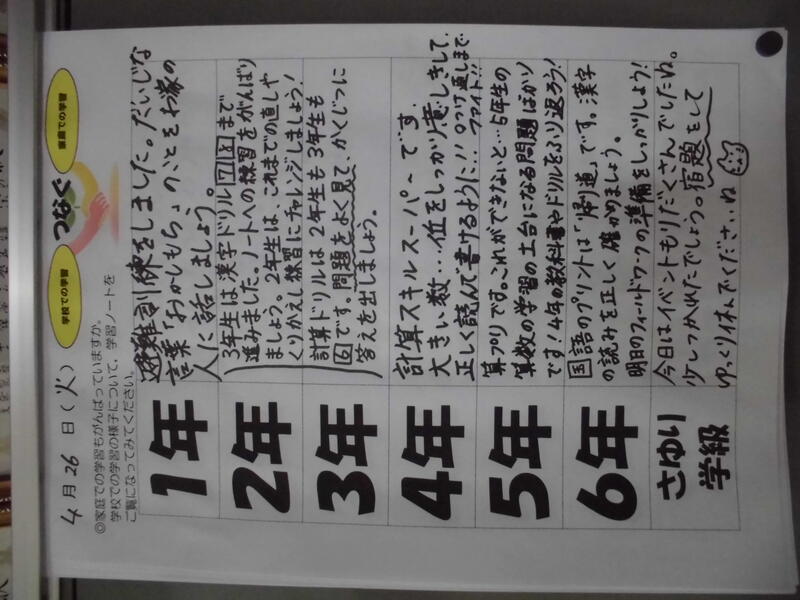 4月26日(火)
学校での学習
つなぐ
家庭での学習
◎家庭での学習もがんばっていますか。
学校での学習の様子について、学習ノートを
ご覧になってみてください。
1年
避難訓練をしました。だいじな
言葉「おかしもち」のことをお家の
人に話しましょう。
2年
3年生は漢字ドリル17 18まで
進みました。ノートへの練習をがんばり
ましょう。2年生は、これまでの直しや
くりかえし練習にチャレンジしましょう!
3年
計算ドリルは2年生も3年生も
6です。問題をよく見て、かくじつに
答えを出しましょう。
4年
計算スキルスーパーです。
大きい数…位をしっかり意しきして、
正しく読んで書けるように!!〇つけ直しまで
ファイト!!
5年
算プリです。これができないと…5年生の
算数の学習の土台になる問題ばかり
です!4年の教科書やドリルをふり返ろう!
6年
国語のプリントは「帰り道」です。漢字
の読みを正しく確かめましょう。
明日のフィールドワークの準備をしっかりしましょう!
さゆり
学級
今日はイベントもりだくさんでしたね。
少しつかれたでしょう。宿題をして
ゆっくり休んでくださいね